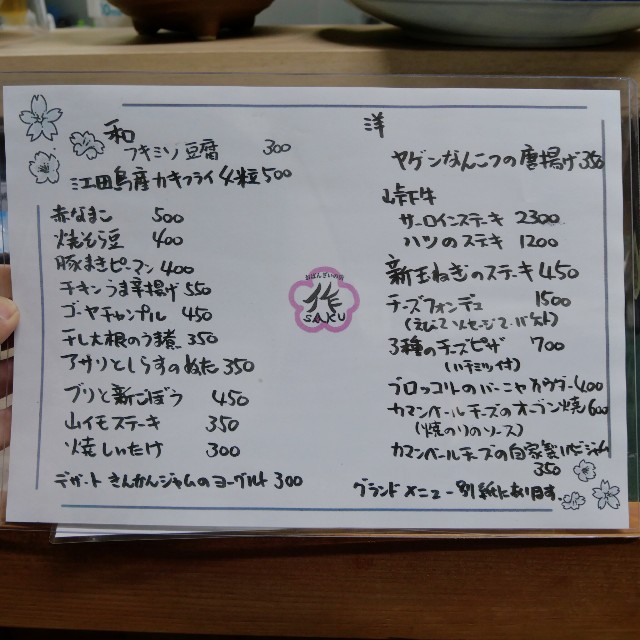 和
フキミソ豆腐 300
江田島産カキフライ4粒 500
赤なまこ 500
焼そら豆 400
豚まきピーマン 400
チキンうま辛揚げ 550
ゴーヤチャンプル 450
干し大根のうま煮 350
アサリとしらすのぬた 350
ブリと新ごぼう 450
山イモステーキ 350
焼しいたけ 300
デザート きんかんジャムのヨーグルト 300
おばんざいの店
作
SAKU
洋
ヤゲンなんこつの唐揚げ 350
峠下牛
サーロインステーキ 2300
ハツのステキ 1200
新玉ねぎのステキ 450
チーズフォンデュ 1500
(えびて ソセージて バケト)
3種のチーズピザ 700
(ハチミツ付)
ブロッコリトのバーニャカウダー 400
カマンベールチーズのオーブン焼 600
(焼のりのソース)
カマンベールチーズの自家製いちごジャム
350
グランドメニュー別紙にあります。